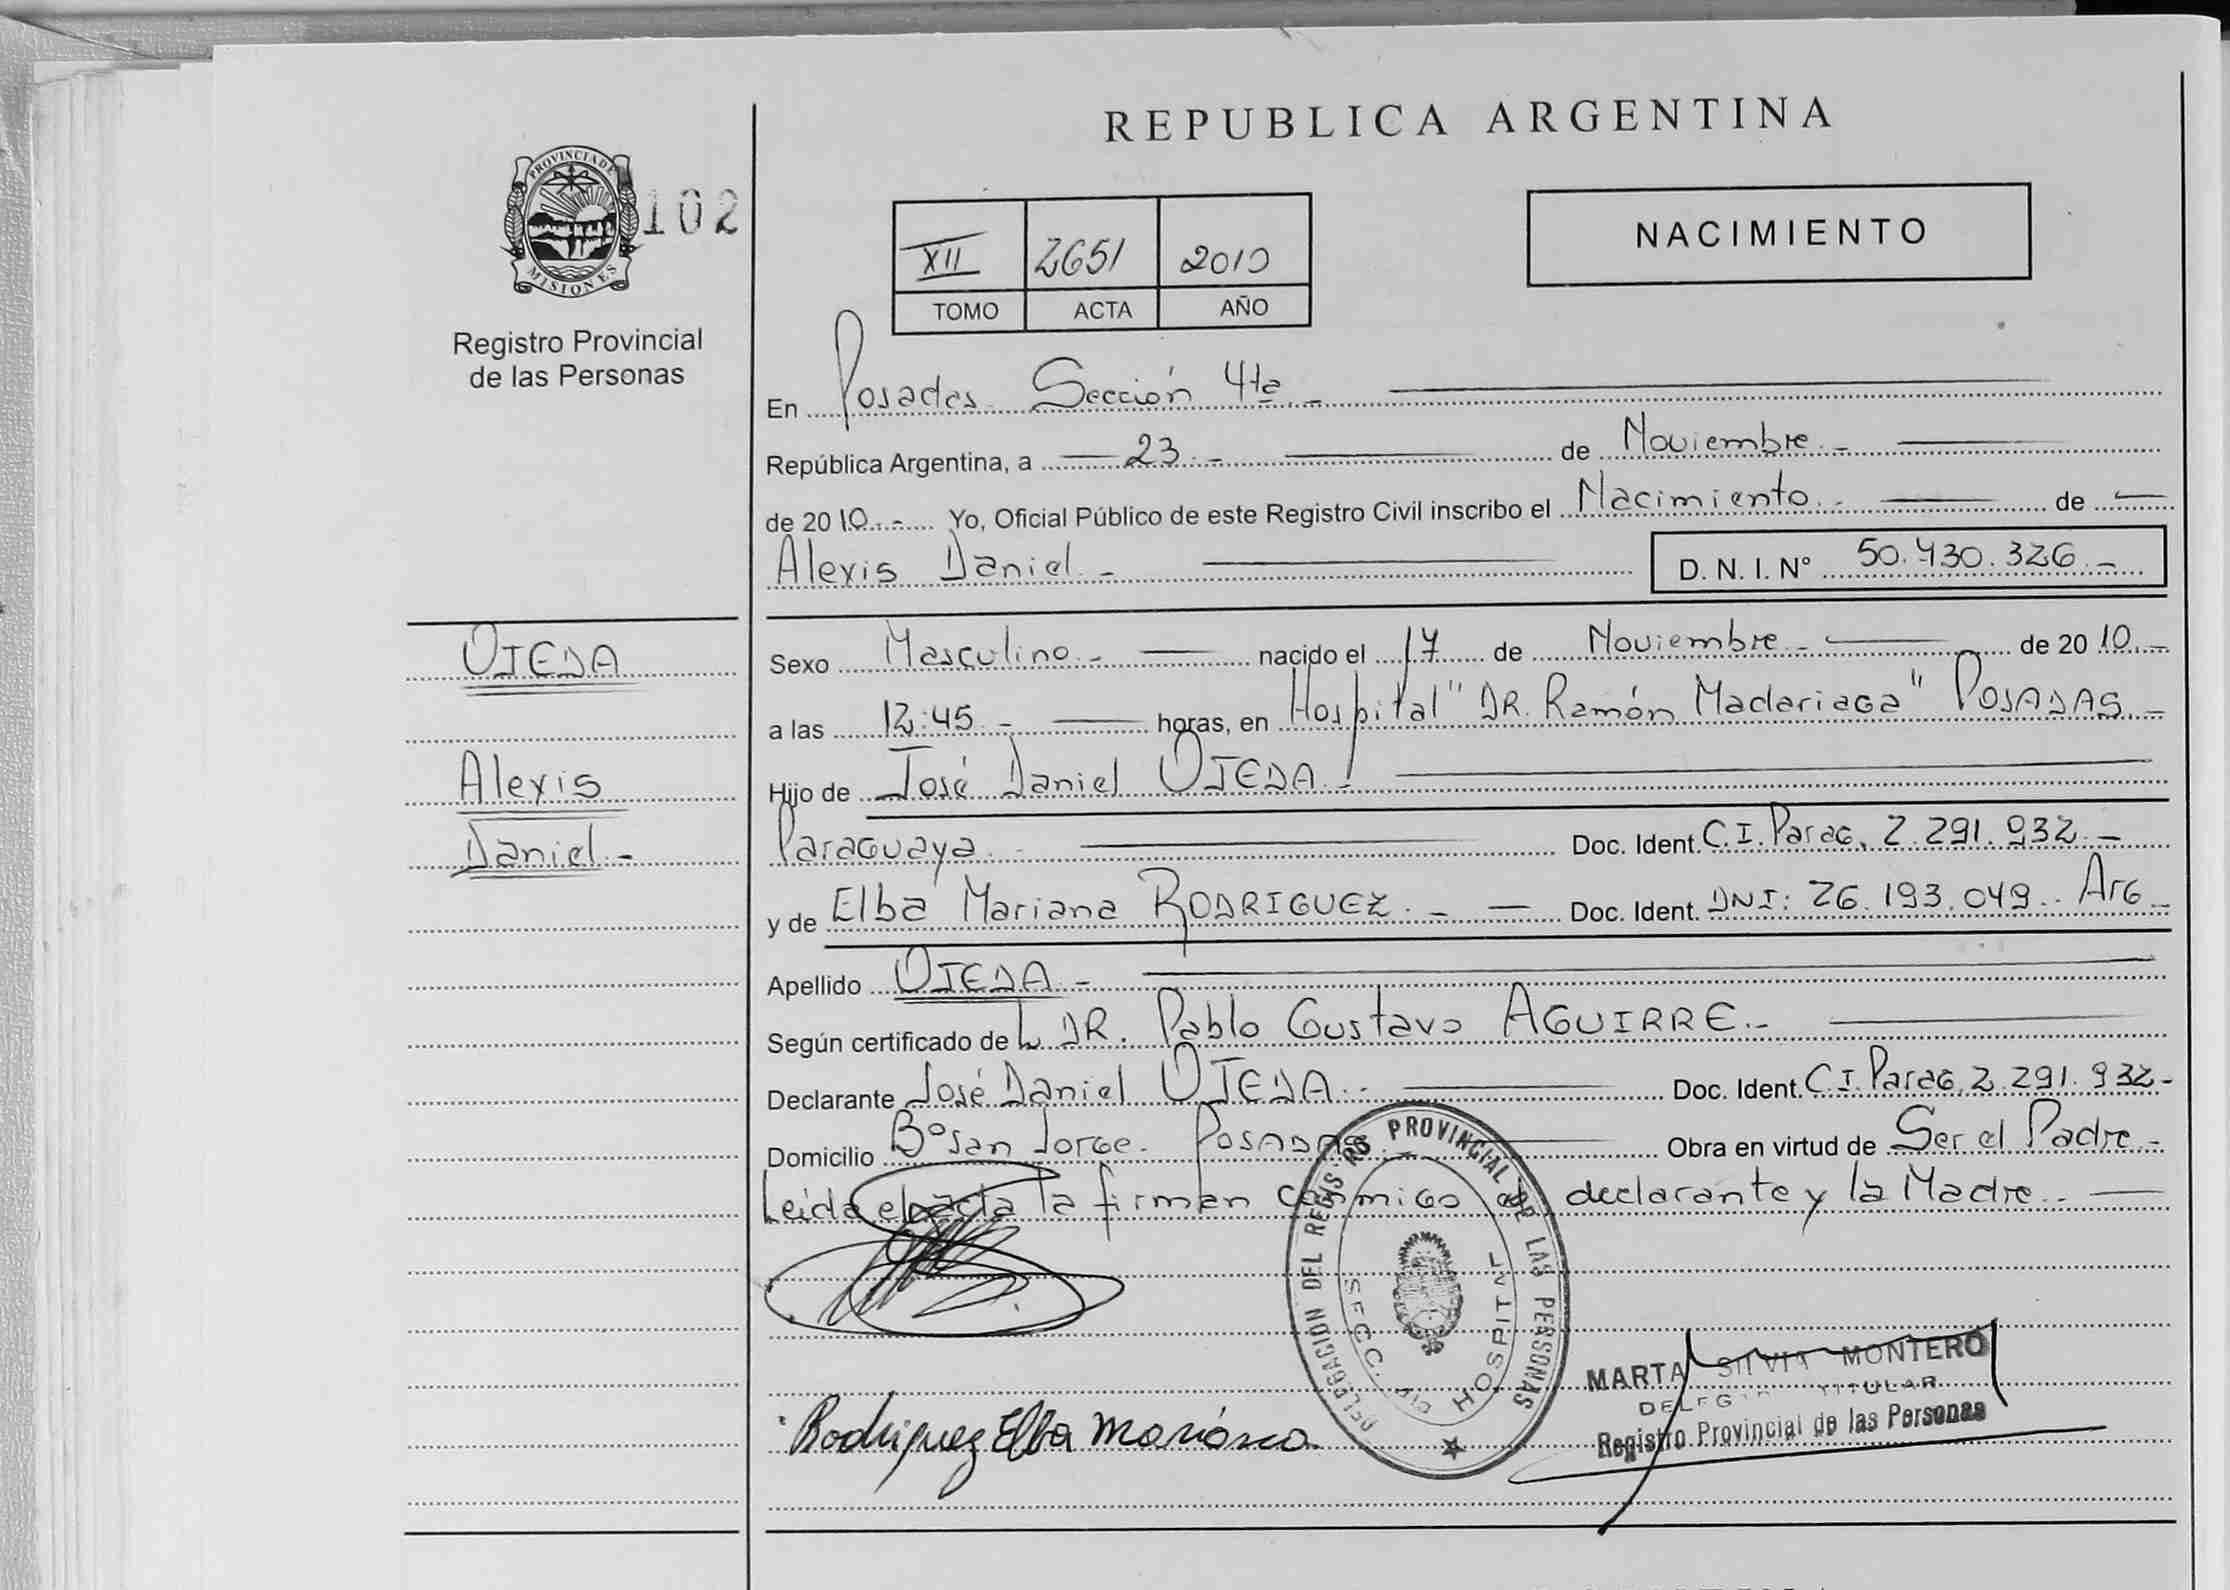 PROVINCIA DE
MISIONES
102
Registro Provincial
de las Personas
REPUBLICA ARGENTINA
XII 2651 2010
TOMO ACTA AÑO
NACIMIENTO
En Posadas Sección 4ta.-
República Argentina, a 23.- de Noviembre.-
de 2010.- Yo, Oficial Público de este Registro Civil inscribo el Nacimiento.- de
Alexis Daniel.- D. N. I. N° 50.430.326.-
OJEDA
Alexis
Daniel.-
Sexo Masculino.- nacido el 17 de Noviembre.- de 2010.-
a las 12:45.- horas, en Hospital "DR. Ramón Madariaga" POSADAS.-
Hijo de José Daniel OJEDA.-
Paraguaya.- Doc. Ident. C.I. Parag. 2.291.932.-
y de Elba Mariana RODRIGUEZ.- Doc. Ident. DNI: 26.193.049.. Arg
Apellido OJEDA.-
Según certificado de L DR. Pablo Gustavo AGUIRRE.-
Declarante José Daniel OJEDA.- Doc. Ident. C.I. Parag. 2.291.932-
Domicilio B° San Jorge. POSADAS.- Obra en virtud de Ser el Padre.-
Leída el acta la firman conmigo el declarante y la Madre.-
DELEGACION DEL REGISTRO PROVINCIAL DE LAS PERSONAS
SECC. HOSPITAL
MARTA SILVIA MONTERO
DELEGADA TITULAR
Registro Provincial de las Personas
Rodriguez Elba Mariana